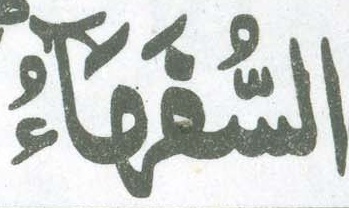 السُّفَهَآءُ